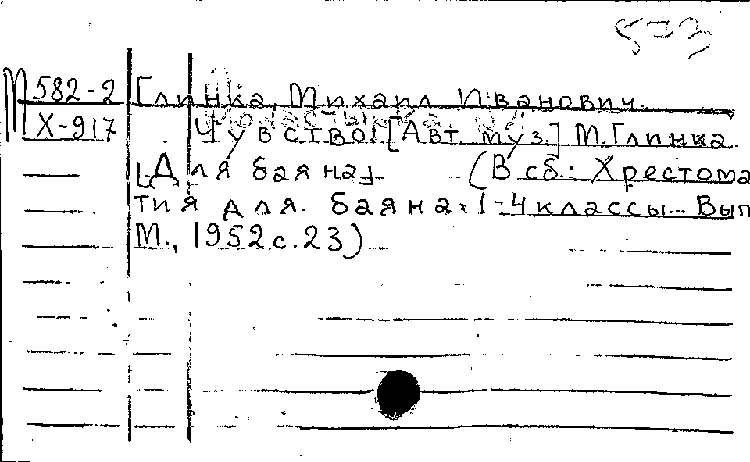 М 582-2 Глинка, Михаил Иванович.
Х-917 Чувство! [Авт. муз.] М. Глинка
[Для баяна] (В сб.: Хрестома
тия для баяна. 1-4 классы. Вып
М., 1952 с. 23)